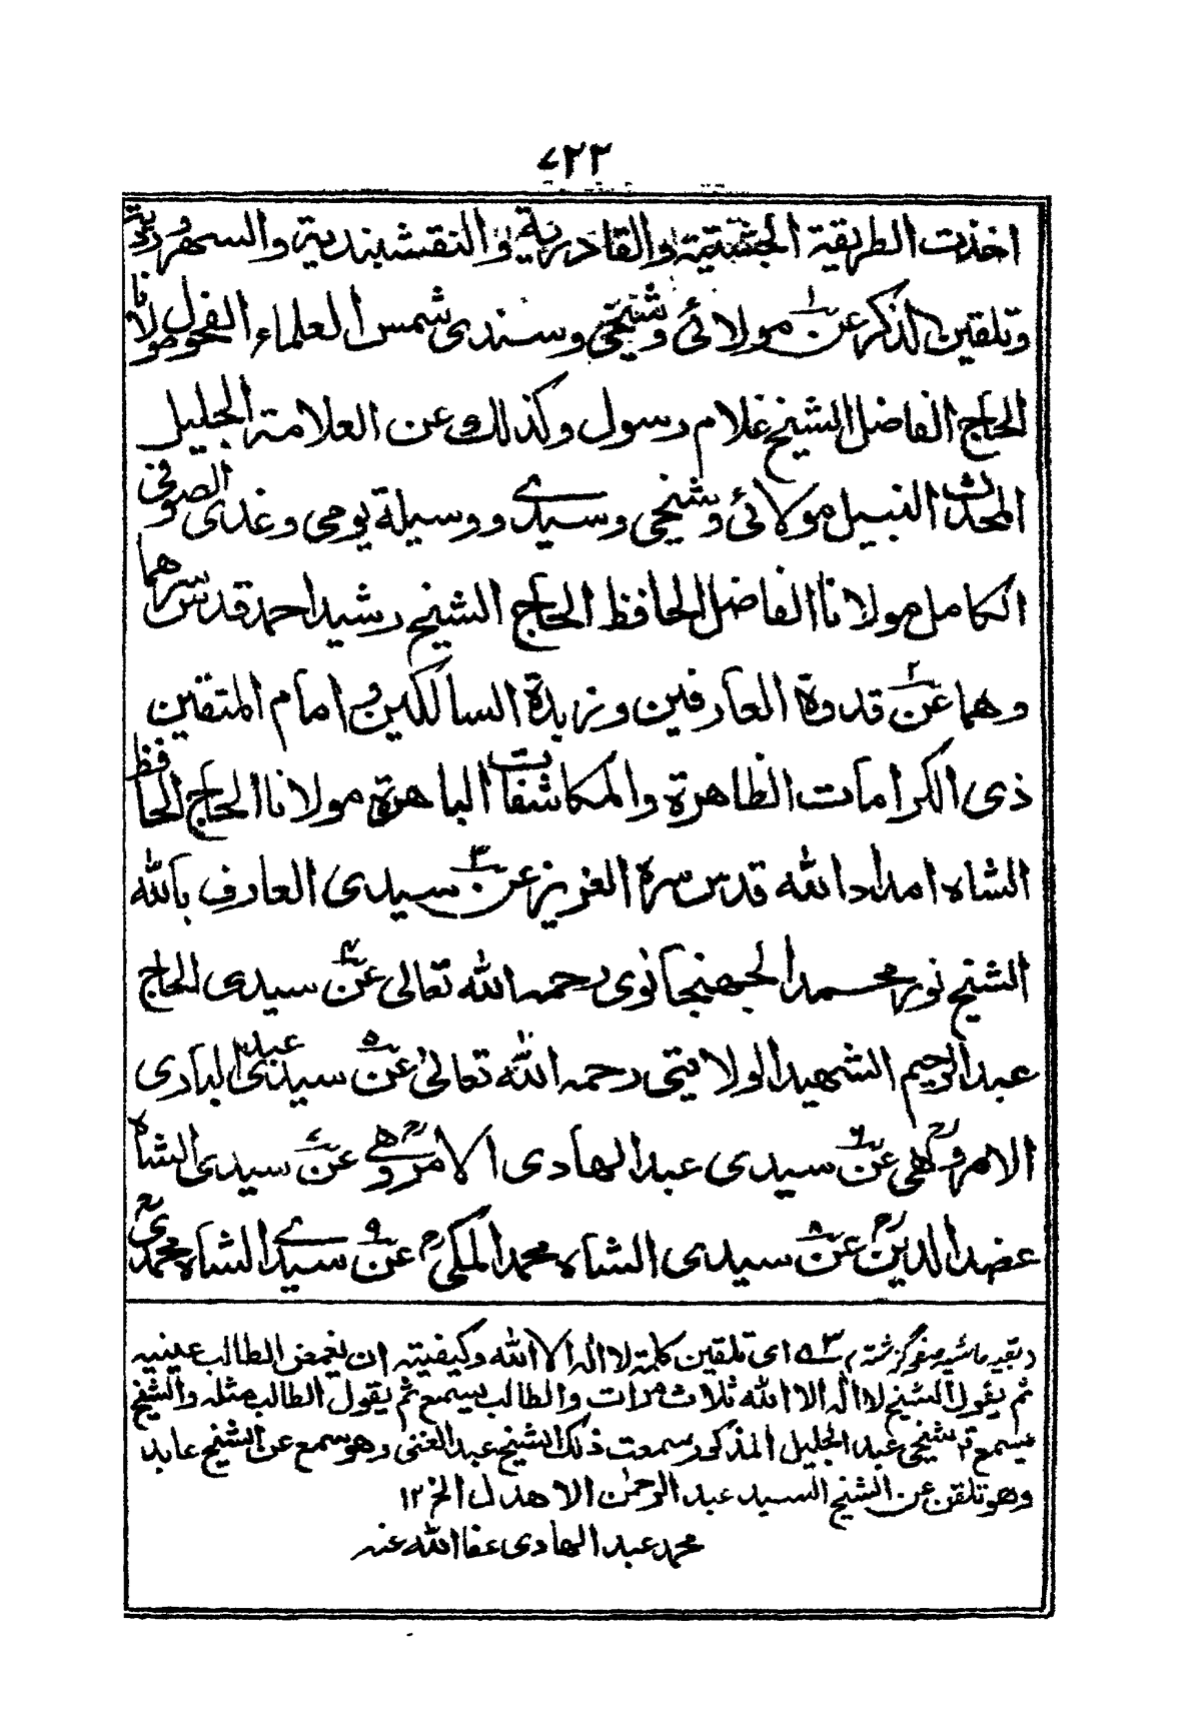 ٧٢٢
اخذت الطريقة الجشتية والقادرية والنقشبندية والسهروردية
وتلقين الذكر عن١ مولائى وشيخى وسندى شمس العلماء الفحول مولانا
الحاج الفاضل الشيخ غلام رسول وكذلك عن العلامة الجليل
المحدث النبيل مولائى وشيخى وسيدى ووسيلة يومى وغدى الصوفى
الكامل مولانا الفاضل الحافظ الحاج الشيخ رشيد احمد قدس سرهما
وهما عن٢ قدوة العارفين وزبدة السالكين و امام المتقين
ذى الكرامات الظاهرة والمكاشفات الباهرة مولانا الحاج الحافظ
الشاه امداد الله قدس سره العزيز عن٣ سيدى العارف بالله
الشيخ نور محمد الجهنجانوى رحمه الله تعالى عن٤ سيدى الحاج
عبد الرحيم الشهيد الولايتى رحمه الله تعالى عن٥ سيدى عبد البارى
الامروهى عن٦ سيدى عبد الهادى الامروهى عن٧ سيدى الشاه
عضد الدين عن٨ سيدى الشاه محمد المكى عن٩ سيدى الشاه محمدى
(بقيه حاشيه صفحه گزشته) ٣ اى تلقين كلمة لا اله الا الله وكيفيته ان يغمض الطالب عينيه
ثم يقول الشيخ لا اله الا الله ثلاث مرات والطالب يسمع ثم يقول الطالب مثله والشيخ
يسمع شيخى عبد الجليل المذكور سمعت ذلك الشيخ عبد الغنى وهو سمع عن الشيخ عابد
وهو تلقن عن الشيخ السيد عبد الرحمن الاهدل الخ ١٢
محمد عبد الهادى عفا الله عنه